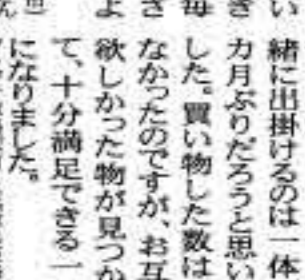 緒に出掛けるのは一体
カ月ぶりだろうと思い
した。買い物した数は
なかったのですが、お互
欲しかった物が見つか
て、十分満足できる一
になりました。